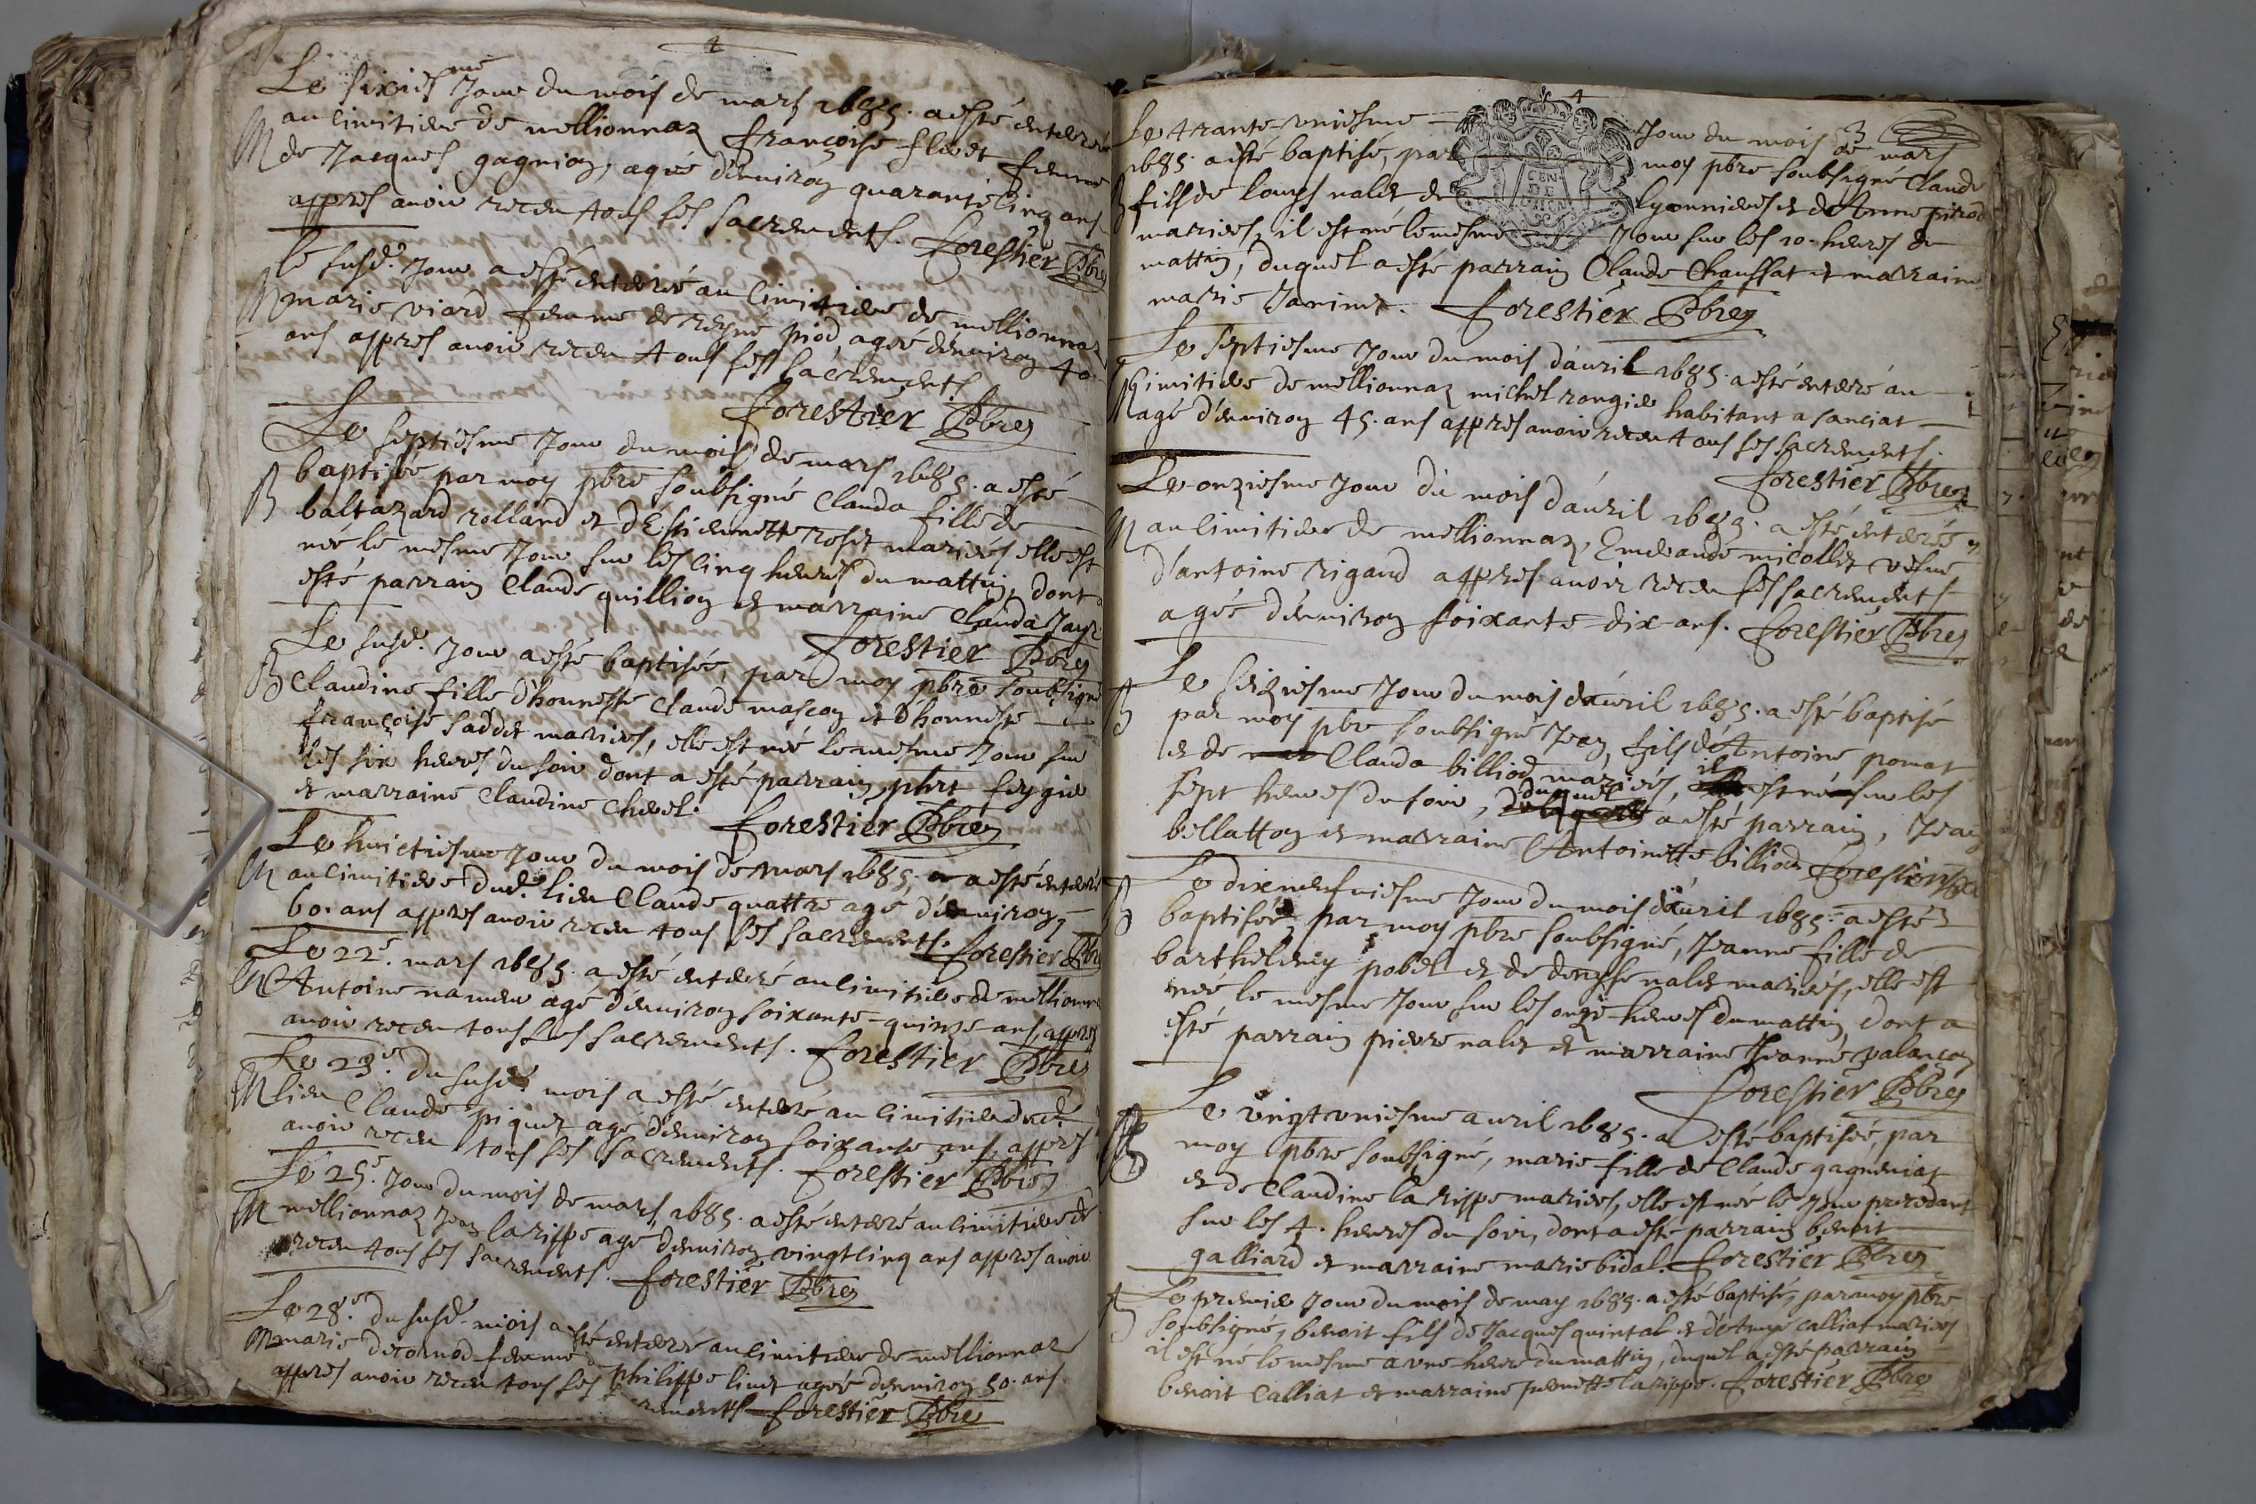 Le sixiesme Jour du mois de mars 1685. a esté enterré
au cimitiere de mellionnaz françoise flivet femme
M de Jacques gagnion, agée d'environ quarante cinq ans
appres avoir receu tous ses sacrements. Forestier Pbre
le susd. Jour a esté enterré au cimitiere de mellionnaz
M marie viard femme de piod, agée d'environ 40
ans appres avoir receu tous ses sacrements
Forestier Pbre
Le septiesme Jour du mois de mars 1685. a esté
B baptisée par moy pbre soubsigné Clauda fille de
baltazard rolland et d'Estiennette roset mariés elle est
née le mesme Jour sur les cinq heures du mattin, dont a
esté parrain Claude quillion et marraine Clauda Jayr
Forestier Pbre
Le susd. Jour a esté baptisée, par moy pbre soubsigné
B Claudine fille d'honneste Claude mascon et d'honneste
françoise saddet mariés, elle est née le mesme Jour sur
les six heures du soir dont a esté parrain phrt
et marraine Claudine Chevel.
Forestier Pbre
Le huictiesme Jour du mois de mars 1685, a esté enterré
M au cimitiere dud. lieu Claude quattre agé d'environ
60. ans appres avoir receu tous ses sacrements. Forestier Pbre
Le 22e. mars 1685. a esté enterré au cimitiere de mellionna
M Antoine agé d'environ soixante-quinze ans, appres
avoir receu tous ses sacrements. Forestier Pbre
Le 23e. du susd. mois a esté enterré au cimitiere dud.
M lieu Claude piquet agé d'environ soixante ans, appres
avoir receu tous ses sacrements. Forestier Pbre
Le 25e. Jour du mois de mars 1685. a esté enterré au cimitiere de
M mellionnaz Jean larippe agé d'environ vingt cinq ans appres avoir
receu tous ses sacrements. Forestier Pbre
Le 28e. du susd. mois a esté enterré au cimitiere de mellionnaz
M marie decomod femme de philippe linet agée d'environ 50. ans
appres avoir receu tous ses sacrements Forestier Pbre
3
Le trante-uniesme Jour du mois de mars
1685. a esté baptisé, par moy pbre soubsigné Claude
B fils de Louys nalet de lyonnieres et de Anne pirod
mariés, il est né le mesme Jour sur les 10. heures du
mattin, duquel a esté parrain Claude Chaussat et marraine
marie Janinet. Forestier Pbre
Le septiesme Jour du mois d'avril 1685. a esté enterré au
M Cimitiere de mellionnaz michel rongier habitant a sanciat
agé d'environ 45. ans appres avoir receu tous ses sacrements.
Forestier Pbre
Le onziesme Jour du mois d'avril 1685. a esté enterrée
M au cimitiere de mellionnaz, Emeraude nicollet vefve
d'antoine rigaud appres avoir receu ses sacrements
agée d'environ soixante-dix-ans. Forestier Pbre
Le seiziesme Jour du mois d'avril 1685. a esté baptisé
B par moy pbre soubsigné Jean, fils d'Antoine ponat
et de Clauda billiod mariés, il est né sur les
sept heures du soir, duquel a esté parrain, Jean
bellatton et marraine Antoinette billiod Forestier Pbre
Le dixneufviesme Jour du mois d'avril 1685. a esté
B baptisée, par moy pbre soubsigné, Jeanne fille de
barthelemy pobel et de denyse nalet mariés, elle est
née le mesme Jour sur les onze heures du mattin dont a
esté parrain pierre nalet et marraine Jeanne palançon
Forestier Pbre
Le vingt uniesme avril 1685. a esté baptisée, par
B moy pbre soubsigné, marie fille de Claude gagneniat
et de Claudine larippe mariés, elle est née le Jour precedant
sur les 4. heures du soir, dont a esté parrain benoit
galliard et marraine marie bidal. Forestier Pbre
Le premier Jour du mois de may 1685. a esté baptisé, par moy pbre
B soubsigné, benoit fils de Jacques quintal et de Calliat mariés
il est né le mesme a une heure du mattin, duquel a esté parrain
benoit Calliat et marraine pernette larippe. Forestier Pbre